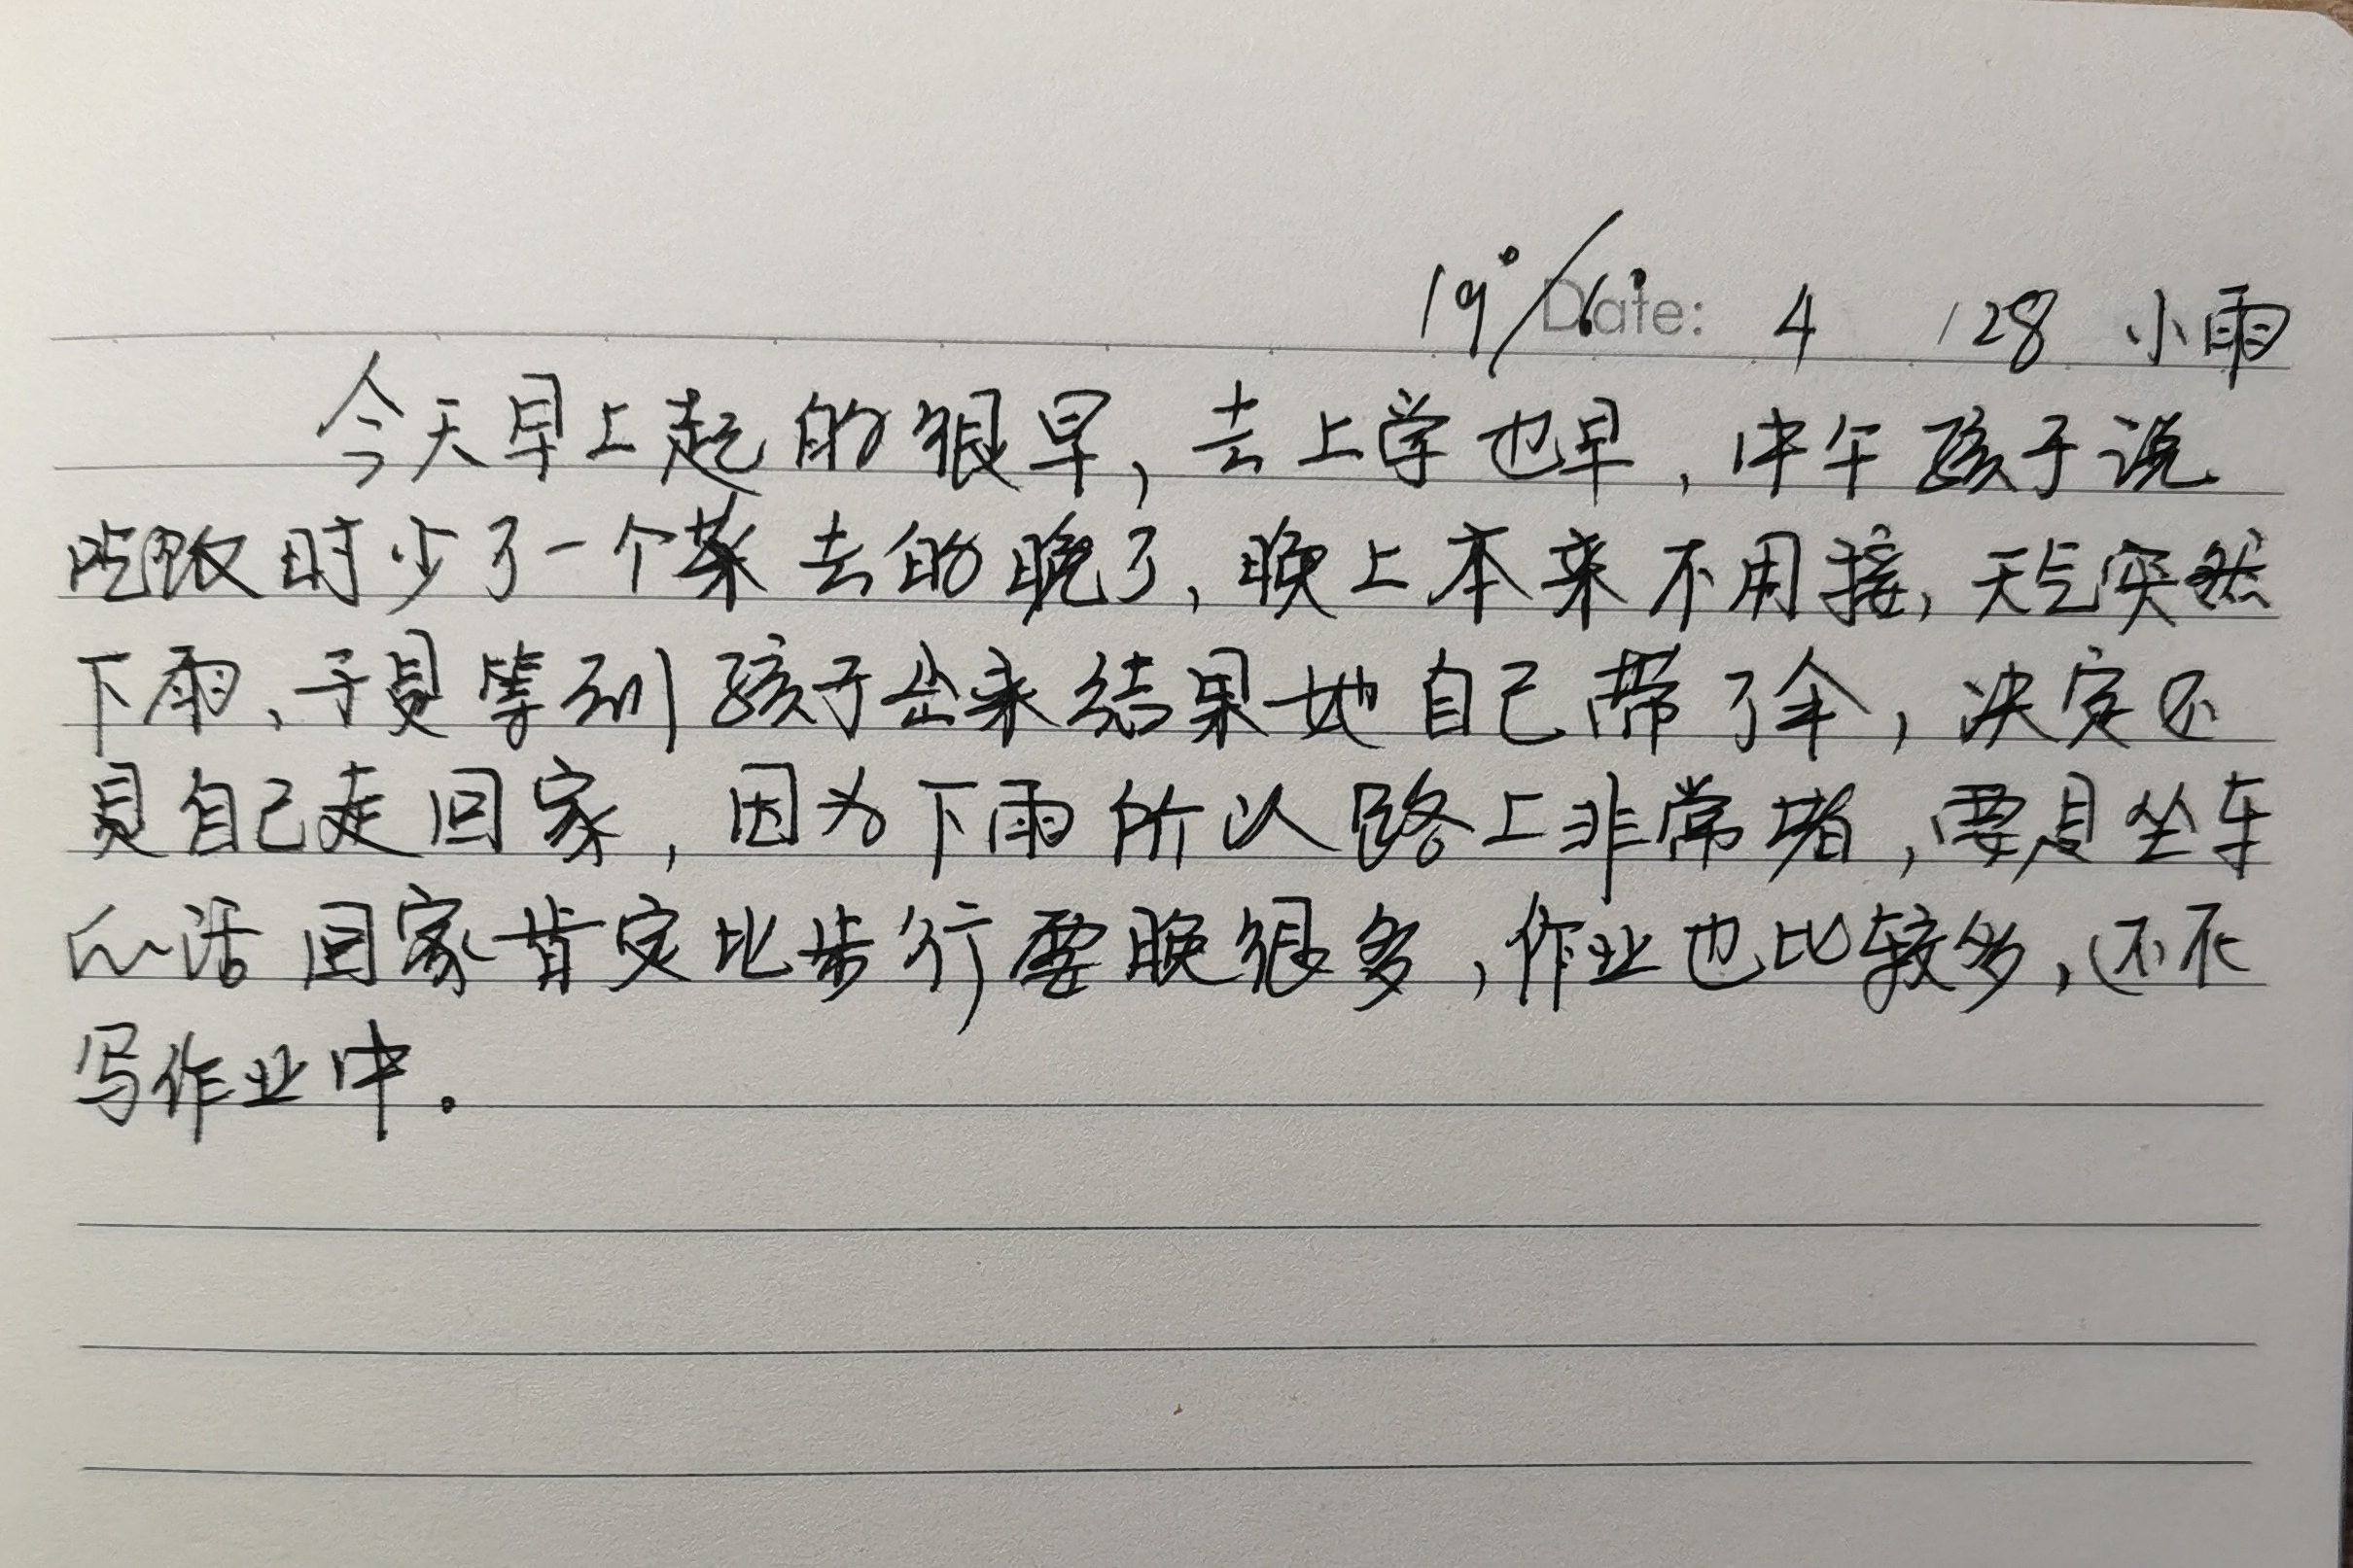 19°/6° Date: 4 /28 小雨
今天早上起的很早,去上学也早,中午孩子说
吃饭时少了一个菜去的晚了,晚上本来不用接,天气突然
下雨,于是等到孩子出来结果她自己带了伞,决定还
是自己走回家,因为下雨所以路上非常堵,要是坐车
的话回家肯定比步行要晚很多,作业也比较多,还在
写作业中。